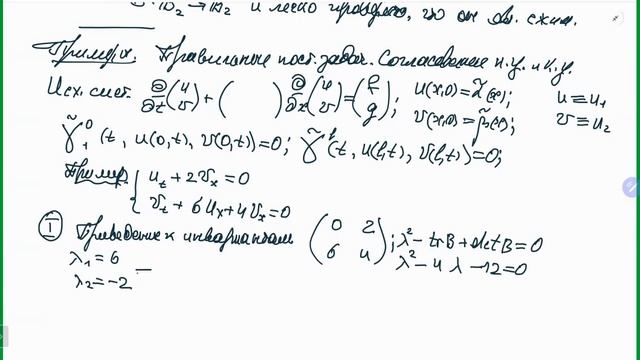 : B₂ → B₂ и легко проверить, что он явл. сжим.
Примеры. Правильные пост. задач. Согласование н.у. и к.у.
Исх. сист. ∂/∂t (u v) + ( ) ∂/∂x (u v) = (f g); u(x,0)=α̃(x); u≡u₁
v(x,0)=β̃(x); v≡u₂
γ̃₁⁰(t, u(0,t), v(0,t))=0; γ̃ˡ(t, u(l,t), v(l,t))=0;
Пример { uₜ + 2vₓ = 0
vₜ + 6uₓ + 4vₓ = 0
① Приведение к инвариантам (0 2 6 4); λ² - trB + det B = 0
λ₁ = 6 λ² - 4λ - 12 = 0
λ₂ = -2